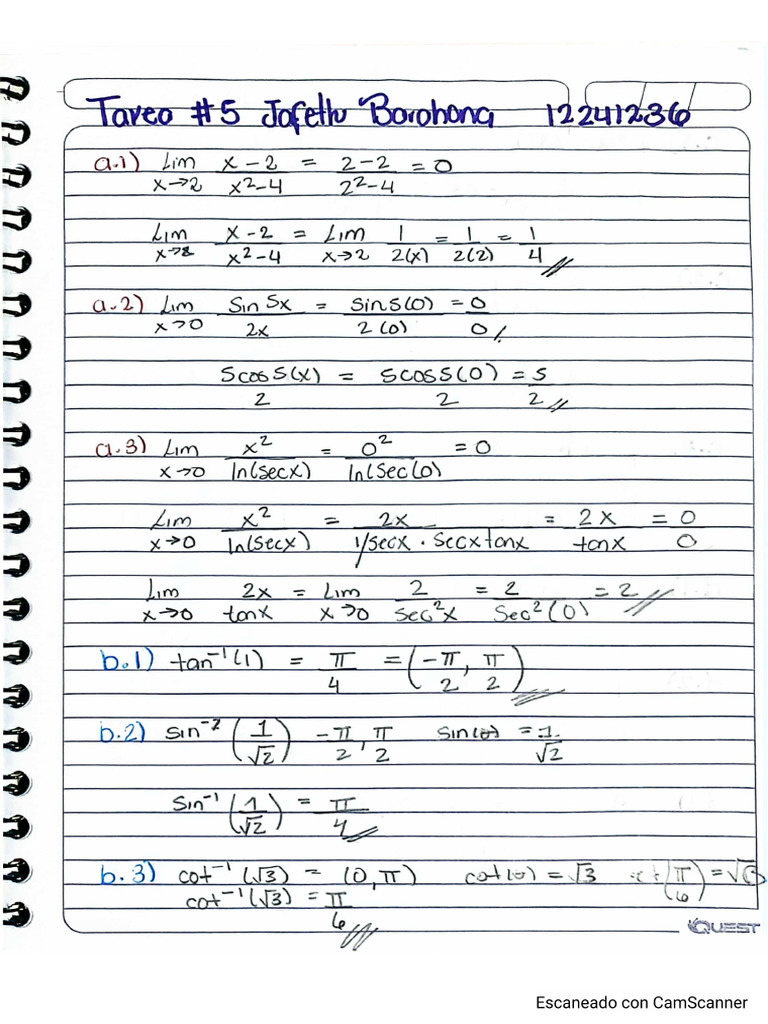 Tarea #5 Jafethu Barahona 12241236
a.1) Lim x→2 x-2 / x²-4 = 2-2 / 2²-4 = 0
Lim x→2 x-2 / x²-4 = Lim x→2 1 / 2(x) = 1 / 2(2) = 1/4
a.2) Lim x→0 Sin 5x / 2x = Sin5(0) / 2(0) = 0/0
5cos5(x) / 2 = 5cos5(0) / 2 = 5/2
a.3) Lim x→0 x² / ln(secx) = 0² / ln(sec(0) = 0
Lim x→0 x² / ln(secx) = 2x / 1/secx · secxtanx = 2x / tanx = 0/0
Lim x→0 2x / tanx = Lim x→0 2 / sec²x = 2 / Sec²(0) = 2
b.1) tan⁻¹(1) = π/4 = (-π/2, π/2)
b.2) sin⁻² (1/√2) -π/2, π/2 Sin(θ) = 1/√2
Sin⁻¹ (1/√2) = π/4
b.3) cot⁻¹(√3) = (0,π) cot(θ) = √3 (π/6) =
cot⁻¹(√3) = π/6
QUEST
Escaneado con CamScanner